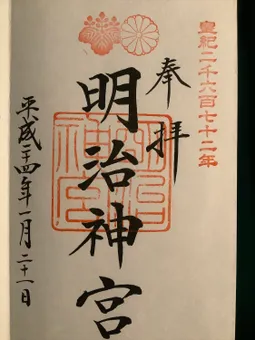 皇紀二千六百七十二年
奉拝
明治神宮
平成二十四年一月二十一日